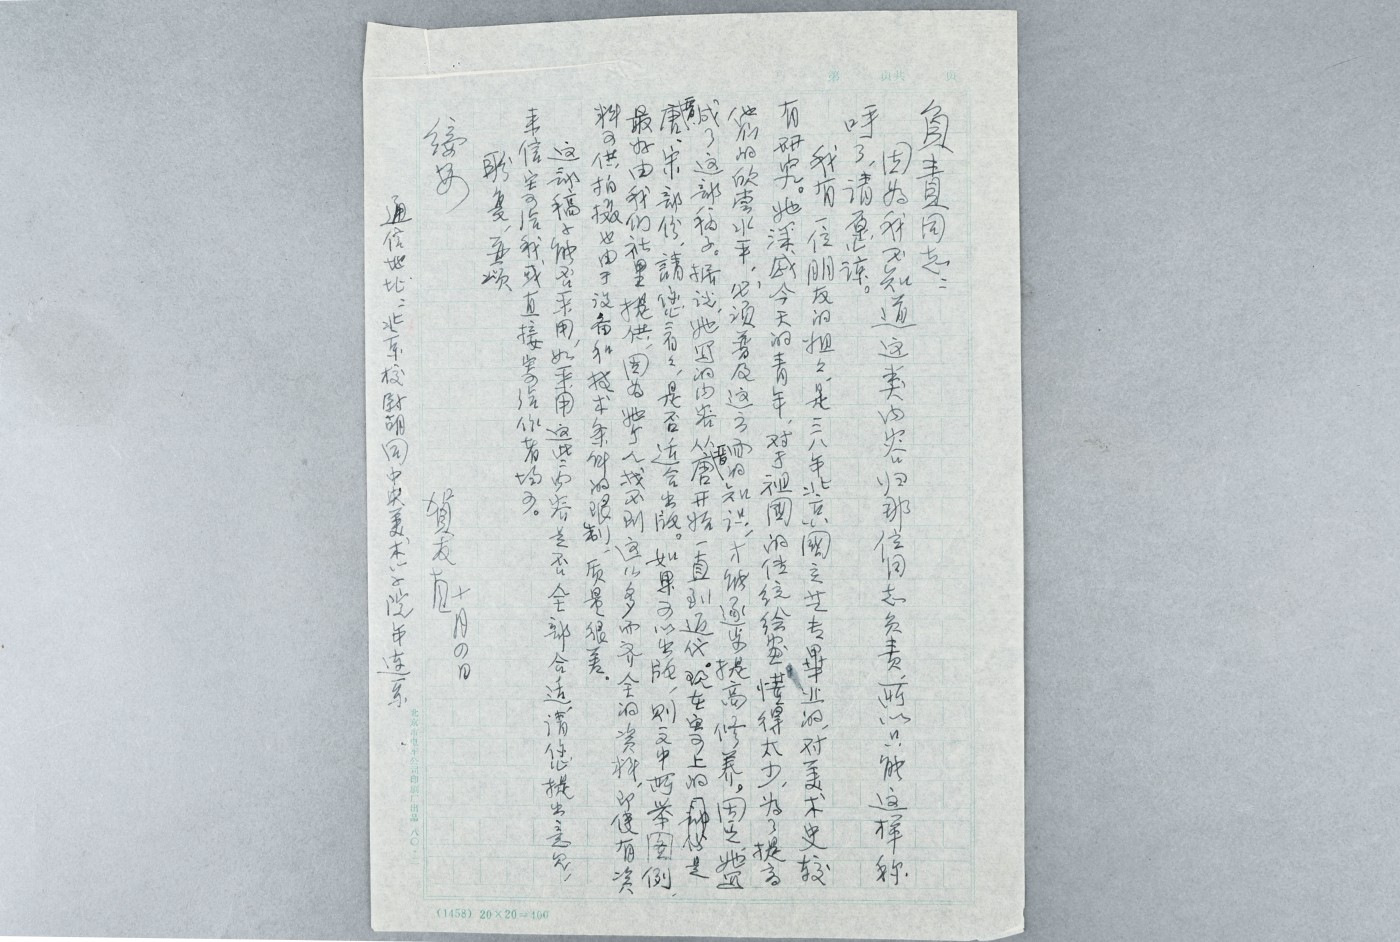 第 页共 页
负责同志：
因为我不知道这类内容归那位同志负责，所以只能这样称
呼了，请原谅。
我有一位朋友的姐姐是三八年北京国立艺专毕业的，对美术史较
有研究。她深感今天的青年，对于祖国的传统绘画懂得太少，为了提高
他们的欣赏水平，必须普及这方面的知识，才能逐步提高修养。因此她写
成了这部稿子。据说，她写的内容从晋唐开始一直到近代。现在寄上的部份是
晋唐、宋部份，请您看看，是否适合出版。如果可以出版，则文中所举图例，
最好由我们社里提供，因为她个人找不到这么多而齐全的资料，即使有资
料可供拍摄也由于设备和技术条件的限制，质量很差。
这部稿子能否采用，如采用这些内容是否全部合适，请您提出意见，
来信寄给我或直接寄给作者均可。
盼复，并颂
绥安
贺友直 十月四日
通信地址：北京校尉胡同中央美术学院年连系
(1458) 20×20=400